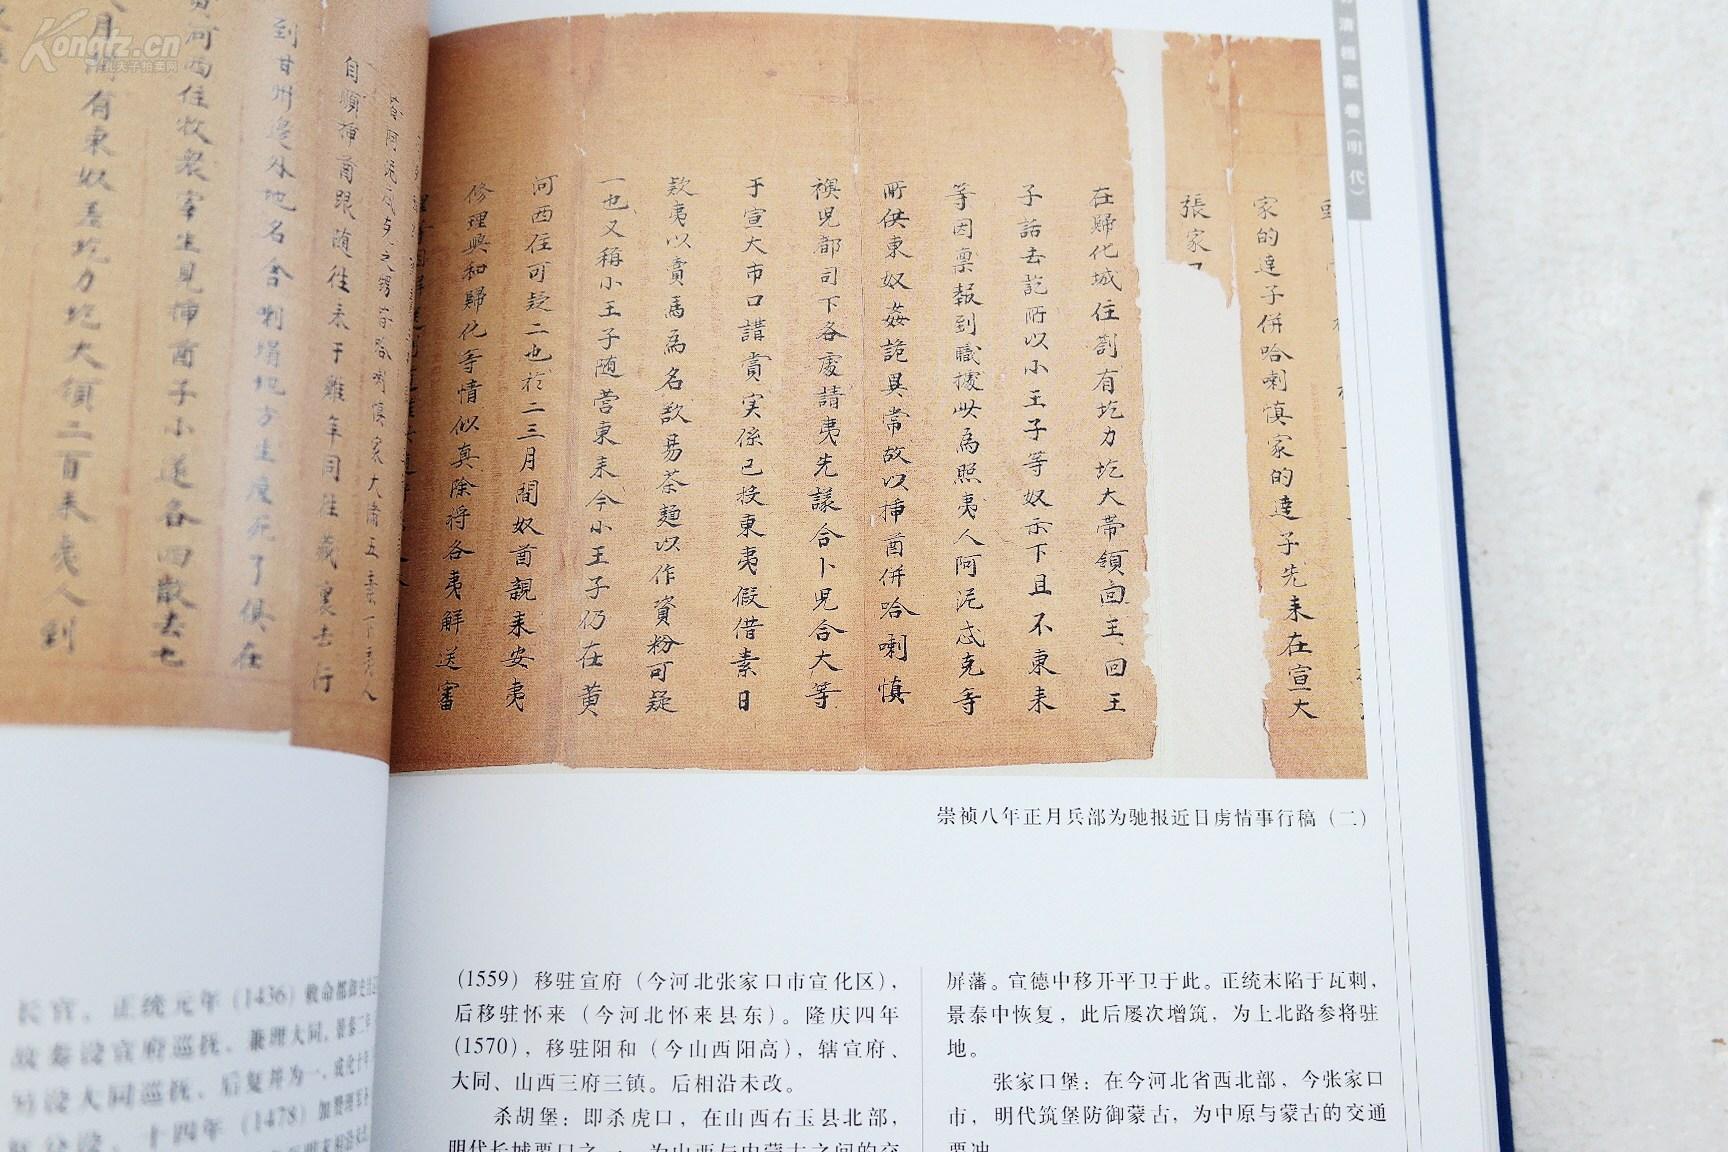 Kongfz.cn
孔夫子拍卖网
明清档案卷（明代）
家的達子併哈喇慎家的達子先来在宣大
張家
在歸化城住劄有圪力圪大帶領囱王囙王
子話去訖所以小王子等奴示下且不東来
等因禀報到職據此為照夷人阿泥忒克等
所供東奴姦詭異常故以揷酋併哈喇慎
襖児都司下各處請夷先議合卜児合大等
于宣大市口講賞実係已投東夷假借素日
欵夷以賣馬為名欵易茶麵以作資粉可疑
一也又稱小王子随营東来今小王子仍在黄
河西住可疑二也於二三月間奴酋親来安夷
修理興和歸化等情似真除将各夷解送審
自順揷酋跟随往来于雞年同往蔵裏去行
到甘州邉外地名舍喇塌地方生度死了俱在
黄河西住牧衆宰生見揷酋子小遂各四散去七
月間有東奴差圪力圪大領二百来夷人到
崇祯八年正月兵部为驰报近日虏情事行稿（二）
长官。正统元年（1436）敕命都御史
故奏设宣府巡抚，兼理大同。景泰二年
另设大同巡抚，后复并为一。成化十年
十四年（1478）加赞理军
（1559）移驻宣府（今河北张家口市宣化区），
后移驻怀来（今河北怀来县东）。隆庆四年
（1570），移驻阳和（今山西阳高），辖宣府、
大同、山西三府三镇。后相沿未改。
杀胡堡：即杀虎口，在山西右玉县北部，
明代长城要口之一，为山西与内蒙古之间的交
屏藩。宣德中移开平卫于此。正统末陷于瓦剌，
景泰中恢复，此后屡次增筑，为上北路参将驻
地。
张家口堡：在今河北省西北部，今张家口
市，明代筑堡防御蒙古，为中原与蒙古的交通
要冲